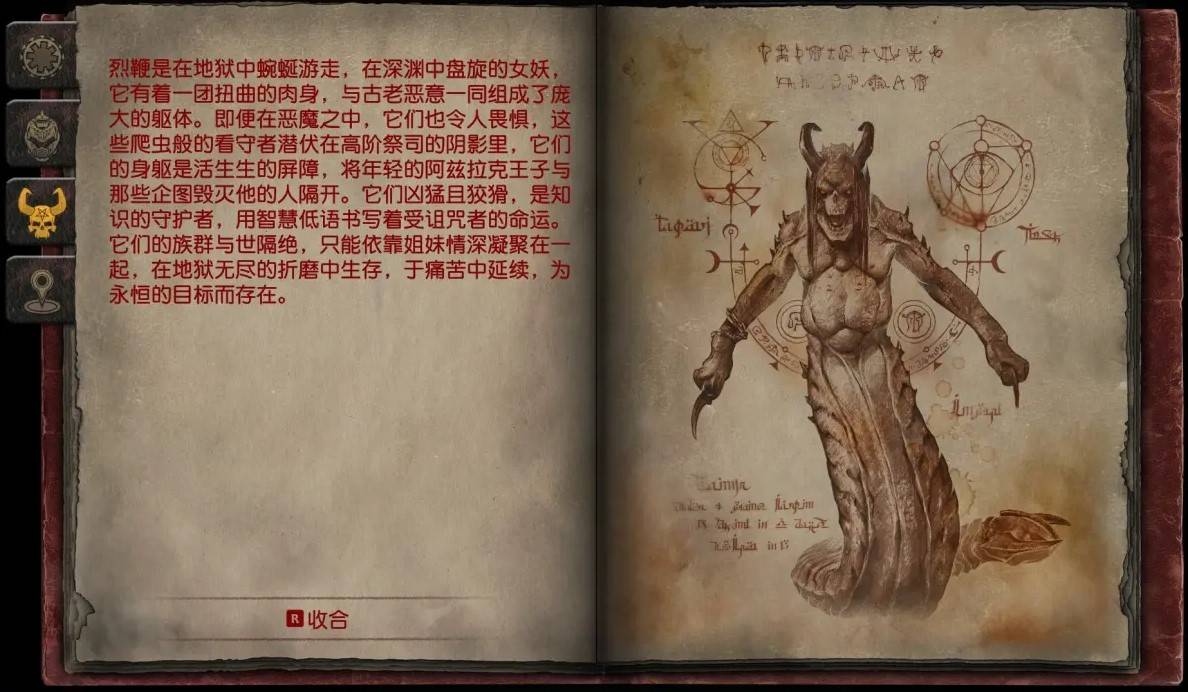 烈鞭是在地狱中蜿蜒游走，在深渊中盘旋的女妖，
它有着一团扭曲的肉身，与古老恶意一同组成了庞
大的躯体。即便在恶魔之中，它们也令人畏惧，这
些爬虫般的看守者潜伏在高阶祭司的阴影里，它们
的身躯是活生生的屏障，将年轻的阿兹拉克王子与
那些企图毁灭他的人隔开。它们凶猛且狡猾，是知
识的守护者，用智慧低语书写着受诅咒者的命运。
它们的族群与世隔绝，只能依靠姐妹情深凝聚在一
起，在地狱无尽的折磨中生存，于痛苦中延续，为
永恒的目标而存在。
R 收合